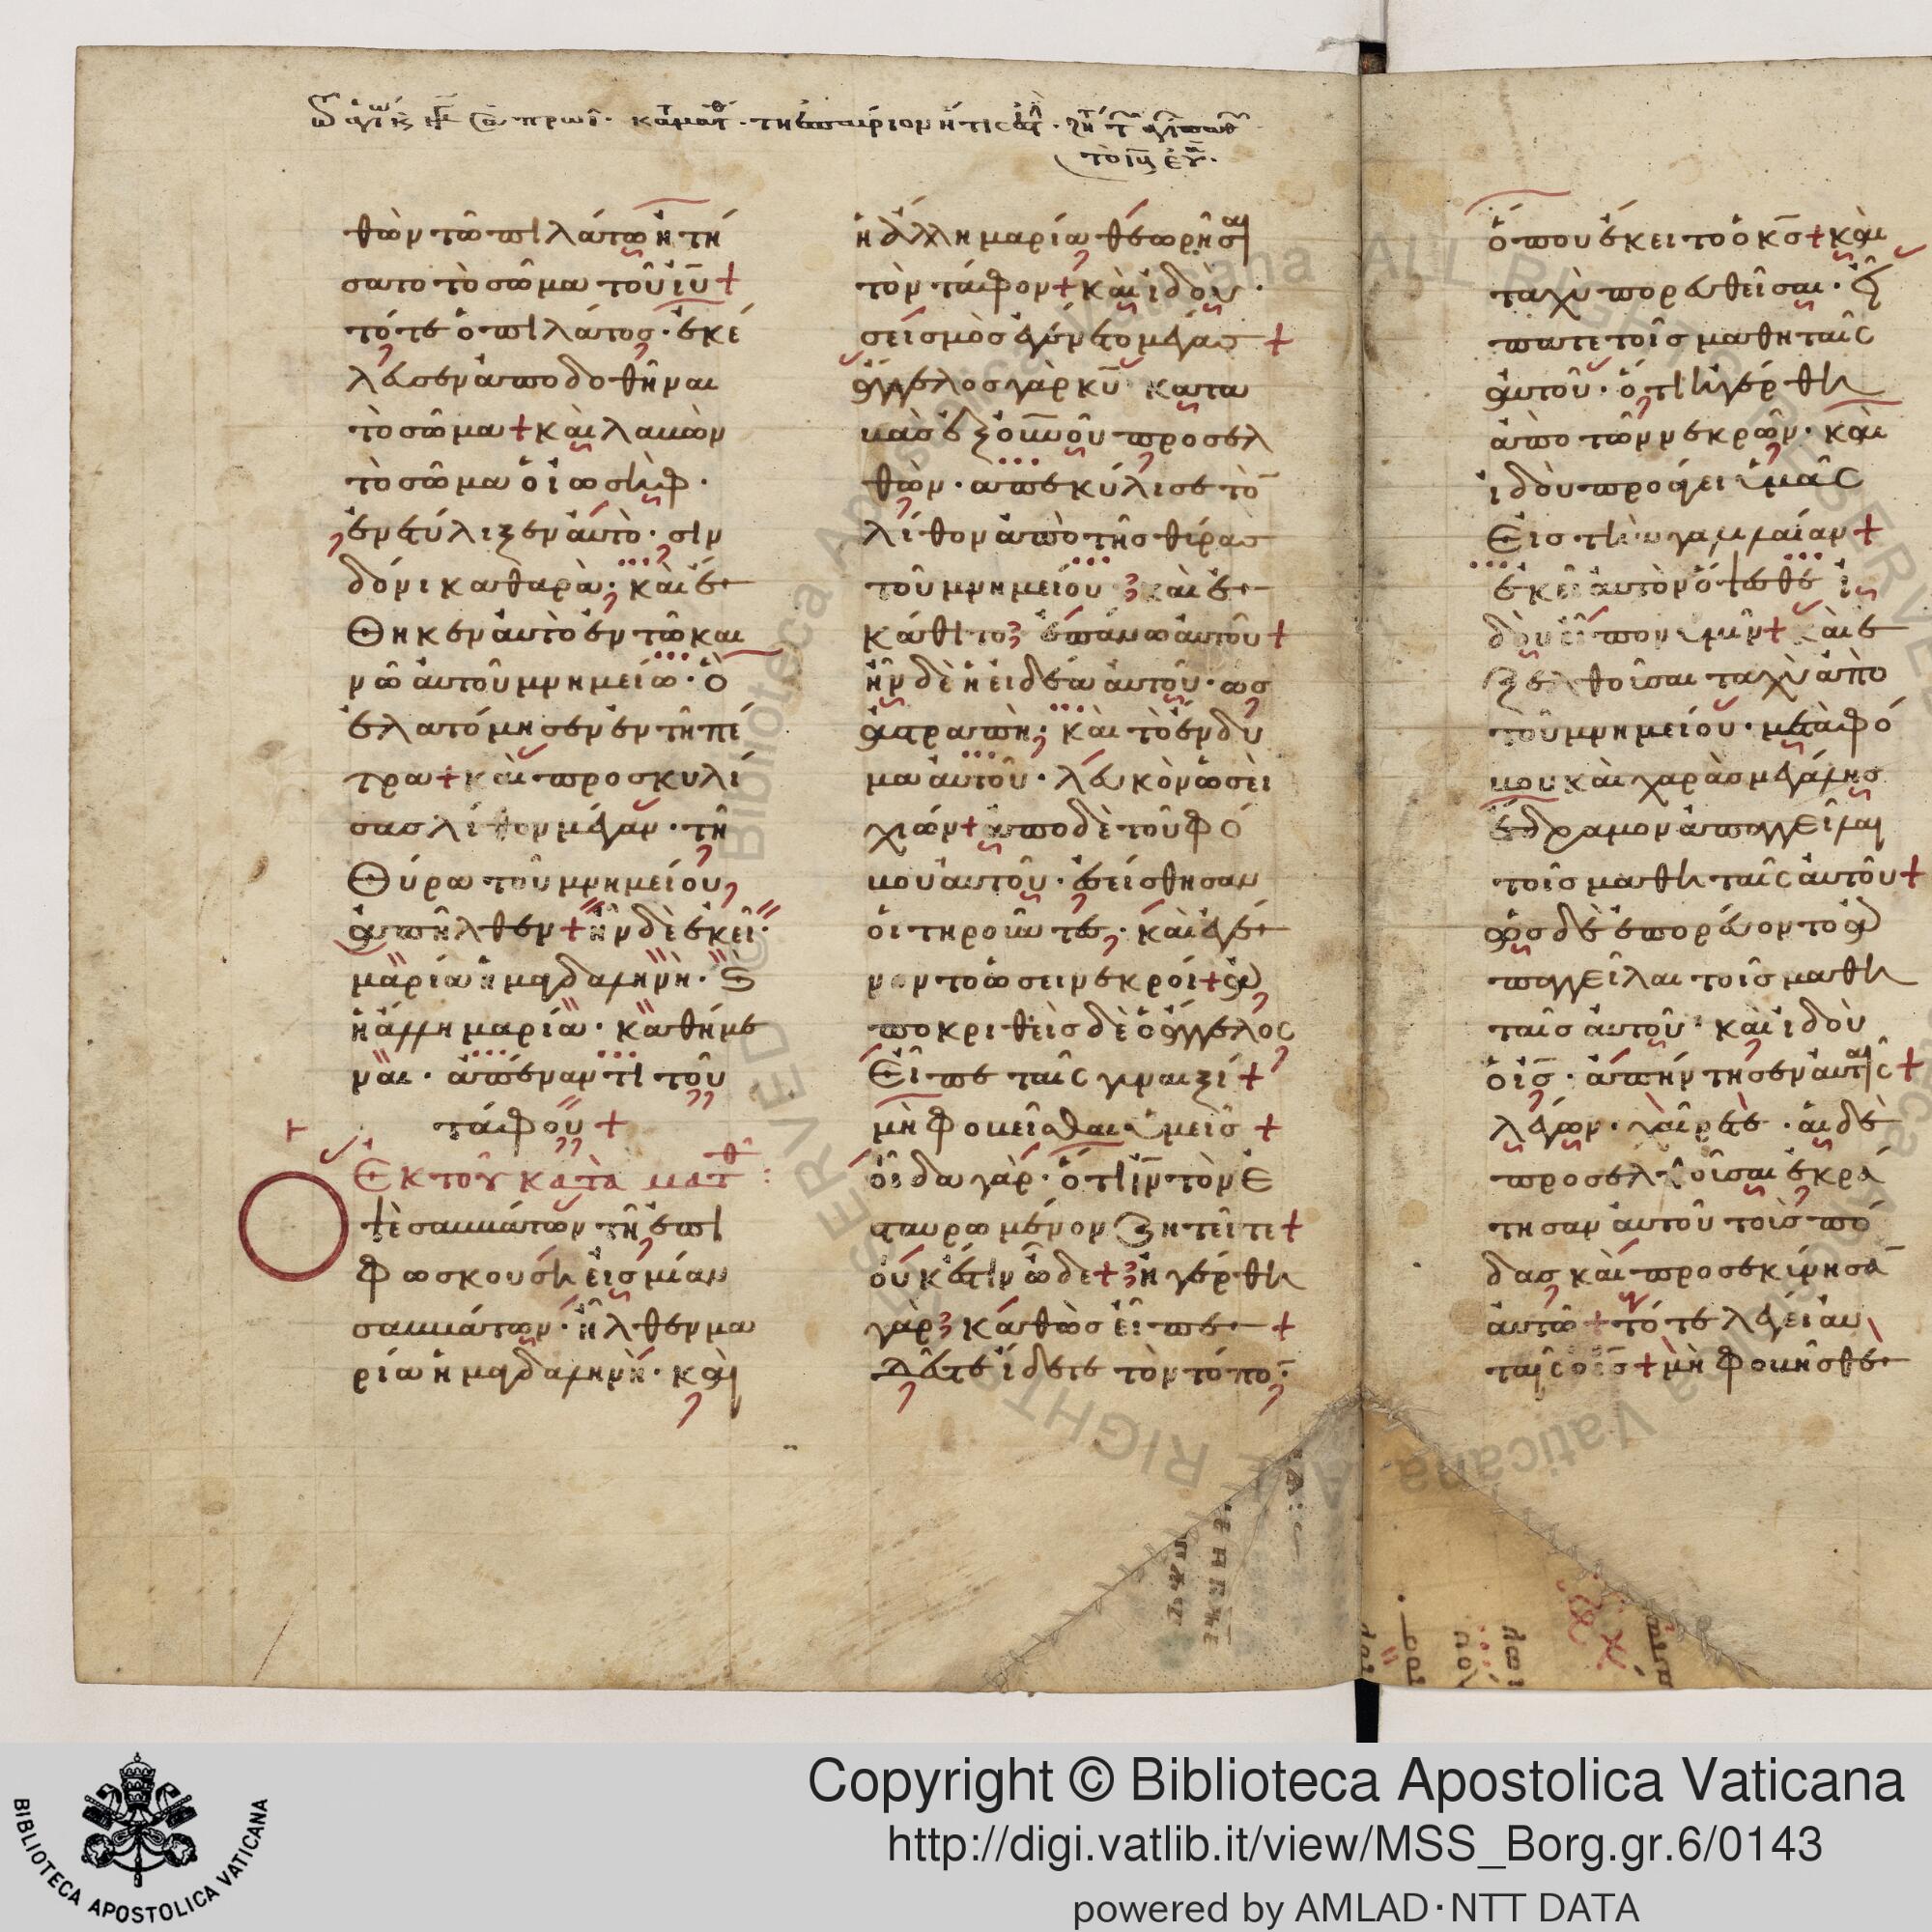 θὼν τῶ πιλάτω ἠτή
σατο τὸ σῶμα τοῦ ιῦ +
τότε ὁ πιλάτος · ἐκέ
λευσεν ἀποδοθῆναι
τὸ σῶμα + καὶ λαβὼν
τὸ σῶμα ὁ ἰωσὴφ ·
ἐνετύλιξεν ἀυτὸ · σιν
δόνι καθαρὰ · καὶ ἔ
θηκεν ἀυτὸ ἐν τῶ και
νῶ ἀυτοῦ μνημείω · ὃ
ἐλατόμησεν ἐν τῆ πέ
τρα + καὶ προσκυλί
σας λίθον μέγαν · τῆ
θύρα τοῦ μνημείου
ἀπῆλθεν + ἦν δὲ ἐκεῖ ·
μαρία ἡ μαγδαληνὴ ·
ἡ ἄλλη μαρία · καθήμε
ναι · ἀπέναντι τοῦ
τάφου +
Ἐκ τοῦ κατὰ ματθ :
Ὀ
ψὲ σαββάτων τῆ ἐπι
φωσκούση εἰς μίαν
σαββάτων · ἦλθεν μα
ρία ἡ μαγδαληνὴ · καὶ
ἡ ἄλλη μαρία θεωρῆσαι
τὸν τάφον + καὶ ἰδοὺ ·
σεισμὸς ἐγένετο μέγας +
ἄγγελος γὰρ κυ κατα
βὰς ἐξ οὐνοῦ προσελ
θὼν · ἀπεκύλισε τὸ
λίθον ἀπὸ τῆς θύρας
τοῦ μνημείου καὶ ἐ
κάθιτο ἐπάνω ἀυτοῦ +
ἦν δὲ ἡ εἰδέα ἀυτοῦ · ὡς
ἀστραπὴ · καὶ τὸ ἔνδυ
μα ἀυτοῦ · λευκὸν ὡσεὶ
χιών + ἀπο δὲ τοῦ φό
βου ἀυτοῦ · ἐσείσθησαν
ὁι τηροῦντες · καὶ ἐγέ
νοντο ὡσει νεκρόι + ἀ
ποκριθεὶς δὲ ὁ ἄγγελος
Εἶπε ταῖς γυναιξί +
μὴ φοβεῖσθαι ὑμεῖς +
οἶδα γὰρ · ὅτι ιν τὸν Ε
σταυρωμένον ζητεῖτε +
οὐκ ἔστιν ὧδε + ἠγέρθη
γὰρ καθὼς εἶπε +
Δεῦτε ἴδετε τὸν τόπο
ὅπου ἔκειτο ὁ κς + καὶ
ταχὺ πορευθεῖσαι · εἴ
πατε τοῖς μαθηταῖς
ἀυτοῦ · ὅτι ἠγέρθη
ἀπο τῶν νεκρῶν · καὶ
ἰδοὺ προάγει ὑμᾶς
Εἰς τὴν γαλλιλαίαν +
ἐκεῖ ἀυτὸν ὄψεσθε ἰ
δοὺ εἶπον ὑμῖν + καὶ ἐ
ξελθοῦσαι ταχὺ ἀπὸ
τοῦ μνημείου · μετὰ φό
βου καὶ χαρὰς μεγάλης
ἔδραμον ἀπαγγεῖλαι
τοῖς μαθηταῖς ἀυτοῦ +
ὡς δὲ ἐπορεύοντο ἀ
παγγεῖλαι τοῖς μαθη
ταῖς ἀυτοῦ · καὶ ἰδοὺ
ὁ ις · ἀπήντησεν ἀυταῖς +
λέγων · χαίρετε · ἁι δὲ
προσελθοῦσαι ἐκρά
τησαν ἀυτοῦ τοὺς πό
δας καὶ προσεκύνησα
ἀυτῶ + τότε λέγει ἀυ
ταῖς ὁ ις + μὴ φοβῆσθε
Copyright © Biblioteca Apostolica Vaticana
http://digi.vatlib.it/view/MSS_Borg.gr.6/0143
powered by AMLAD·NTT DATA
BIBLIOTECA APOSTOLICA VATICANA